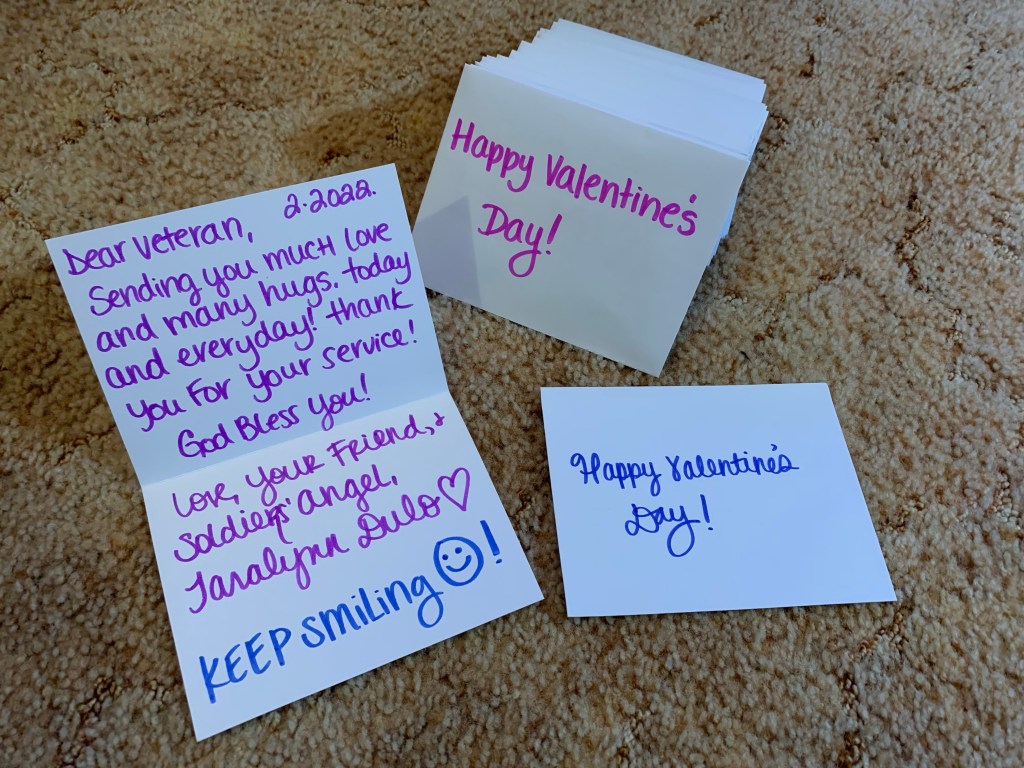 2.2022.
Dear Veteran,
Sending you much love
and many hugs. today
and everyday! thank
you For your service!
God Bless you!
Love, your Friend, +
soldiers' angel,
Taralynn Dulo♡
KEEP SMiLiNg ☺!
Happy Valentine's
Day!
Happy Valentine's
Day!